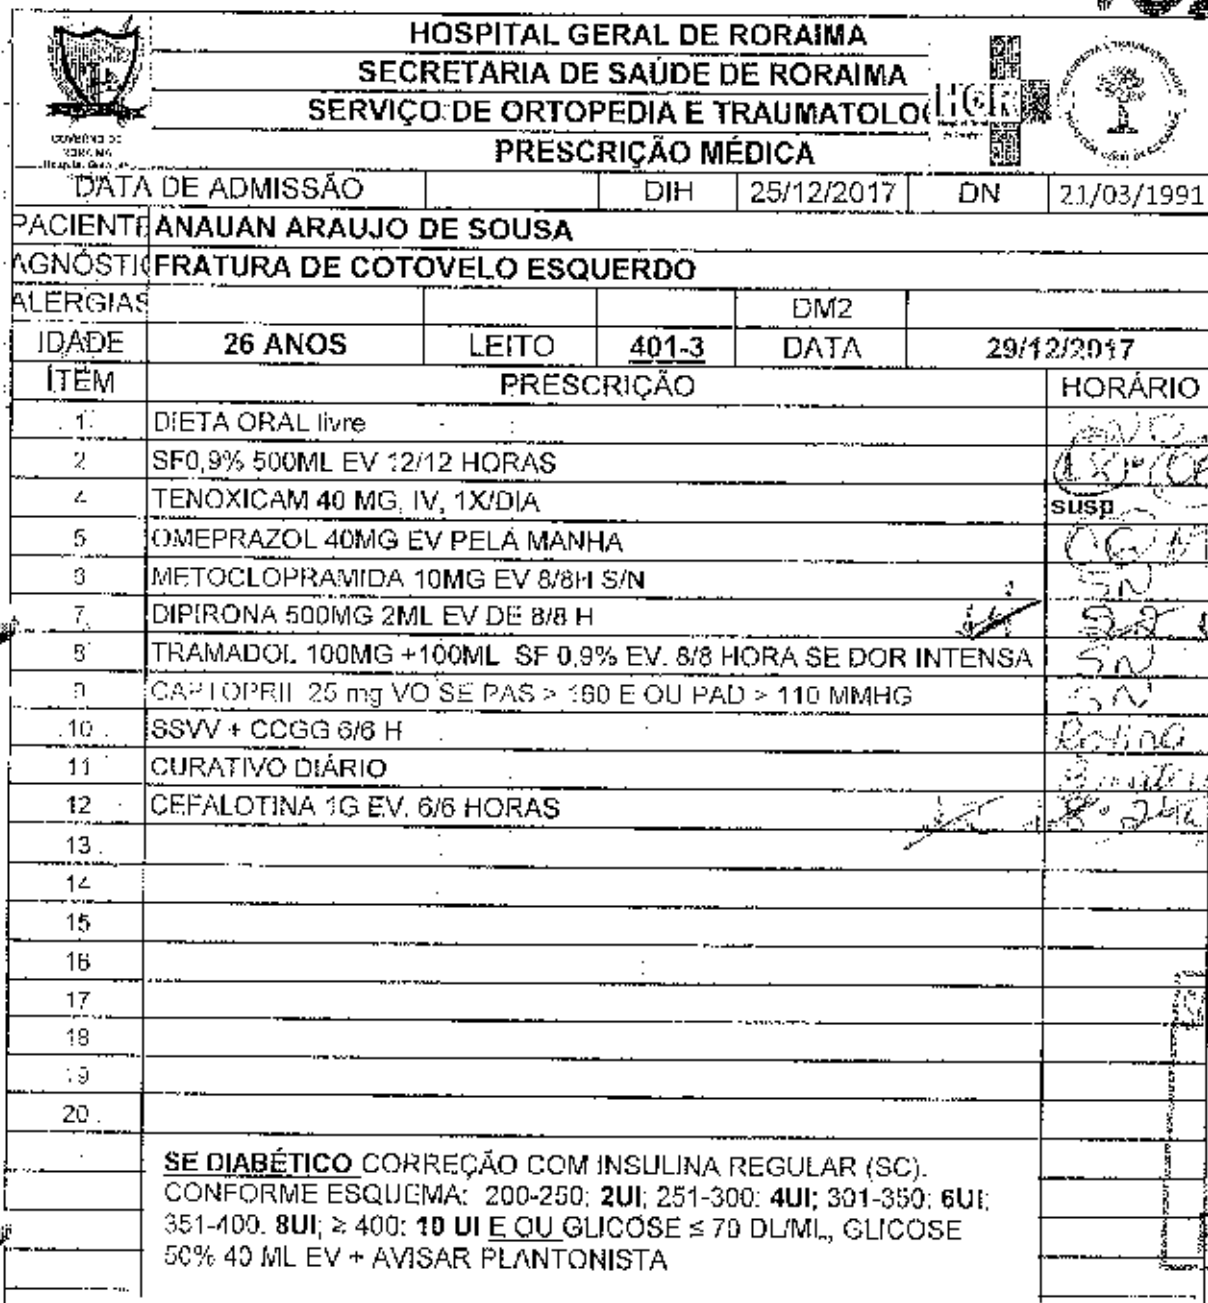 HOSPITAL GERAL DE RORAIMA
SECRETARIA DE SAÚDE DE RORAIMA
SERVIÇO DE ORTOPEDIA E TRAUMATOLO
HGR
PRESCRIÇÃO MÉDICA
DATA DE ADMISSÃO DIH 25/12/2017 DN 21/03/1991
PACIENTE ANAUAN ARAUJO DE SOUSA
AGNÓSTIC FRATURA DE COTOVELO ESQUERDO
ALERGIAS DM2
IDADE 26 ANOS LEITO 401-3 DATA 29/12/2017
ÍTEM PRESCRIÇÃO HORÁRIO
1 DIETA ORAL livre
2 SF0,9% 500ML EV 12/12 HORAS
4 TENOXICAM 40 MG, IV, 1X/DIA susp
5 OMEPRAZOL 40MG EV PELA MANHA
6 METOCLOPRAMIDA 10MG EV 8/8H S/N SN
7 DIPIRONA 500MG 2ML EV DE 8/8 H
8 TRAMADOL 100MG +100ML SF 0,9% EV. 8/8 HORA SE DOR INTENSA SN
9 CAPTOPRIL 25 mg VO SE PAS > 160 E OU PAD > 110 MMHG SN
10 SSVV + CCGG 6/6 H Rotina
11 CURATIVO DIÁRIO
12 CEFALOTINA 1G EV. 6/6 HORAS
13
14
15
16
17
18
19
20
SE DIABÉTICO CORREÇÃO COM INSULINA REGULAR (SC).
CONFORME ESQUEMA: 200-250: 2UI; 251-300: 4UI; 301-350: 6UI;
351-400. 8UI; ≥ 400: 10 UI E OU GLICOSE ≤ 70 DL/ML, GLICOSE
50% 40 ML EV + AVISAR PLANTONISTA